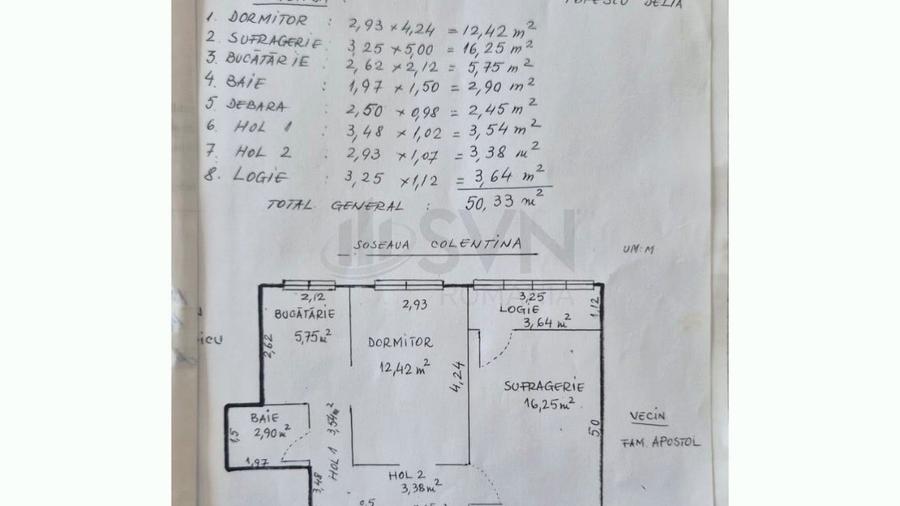 POPESCU DELIA
1. DORMITOR : 2,93 x 4,24 = 12,42 m²
2. SUFRAGERIE : 3,25 x 5,00 = 16,25 m²
3. BUCĂTĂRIE : 2,62 x 2,12 = 5,75 m²
4. BAIE : 1,97 x 1,50 = 2,90 m²
5 DEBARA : 2,50 x 0,98 = 2,45 m²
6 HOL 1 : 3,48 x 1,02 = 3,54 m²
7 HOL 2 : 2,93 x 1,07 = 3,38 m²
8. LOGIE : 3,25 x 1,12 = 3,64 m²
TOTAL GENERAL : 50,33 m²
SVN
ROMANIA
SOSEAUA COLENTINA
UM: M
2,12
2,93
3,25
BUCĂTĂRIE
5,75 m²
2,62
DORMITOR
12,42 m²
4,24
LOGIE
3,64 m²
1,12
SUFRAGERIE
16,25 m²
5,0
VECIN
FAM. APOSTOL
BAIE
2,90 m²
1,5
1,97
HOL 1 3,54 m²
3,48
HOL 2
3,38 m²
0,5
icu